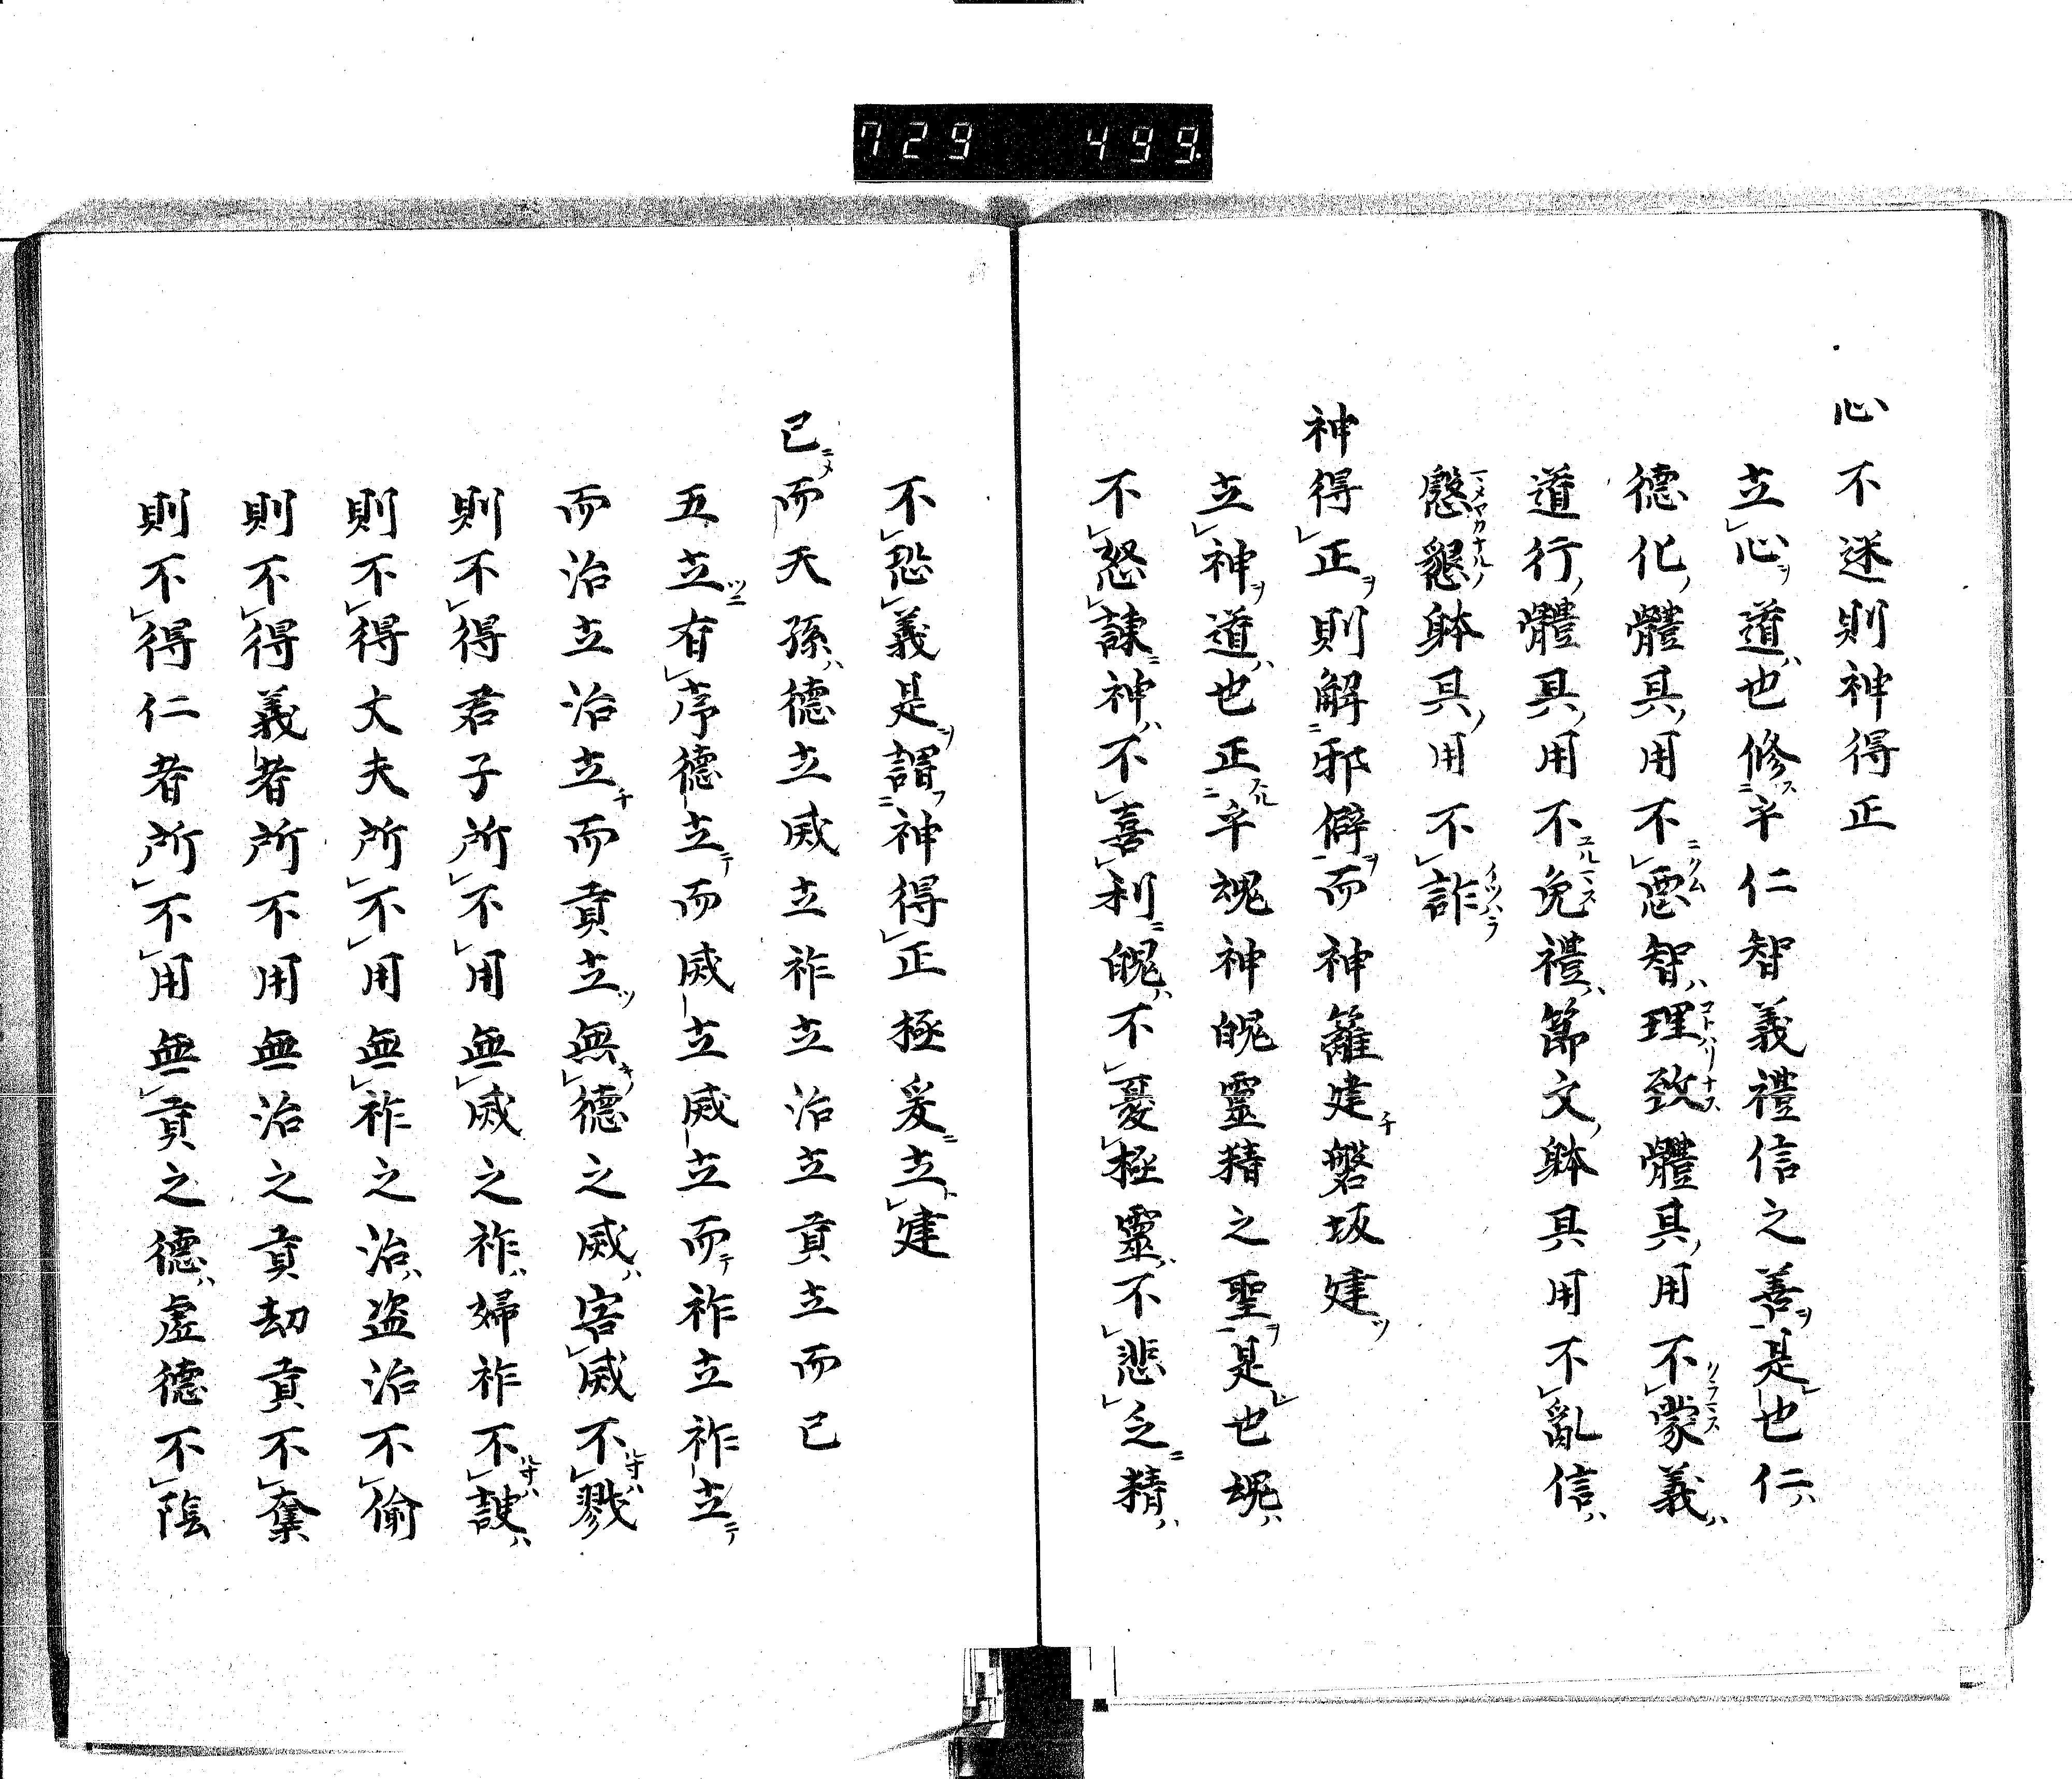 729 499
心不迷則神得正
立心道也修辛仁智義禮信之善是也仁
德化體具用不悪智理致體具用不蒙義
道行體具用不免禮節文躰具用不亂信
慇懇躰具用不詐
神得正則解邪僻而神籬建磐坂建
立神道也正辛魂神魄靈精之聖是也魂
不怒諫神不喜利魄不憂極靈不悲之精
不恐義是謂神得正極爰立建
已而天孫德立威立祚立治立貢立而已
五立有序德立而威立威立而祚立祚立
而治立治立而貢立無德之威害威不戮
則不得君子所不用無威之祚婦祚不詖
則不得丈夫所不用無祚之治盗治不偷
則不得義者所不用無治之貢劫貢不奪
則不得仁者所不用無貢之德虛德不陰